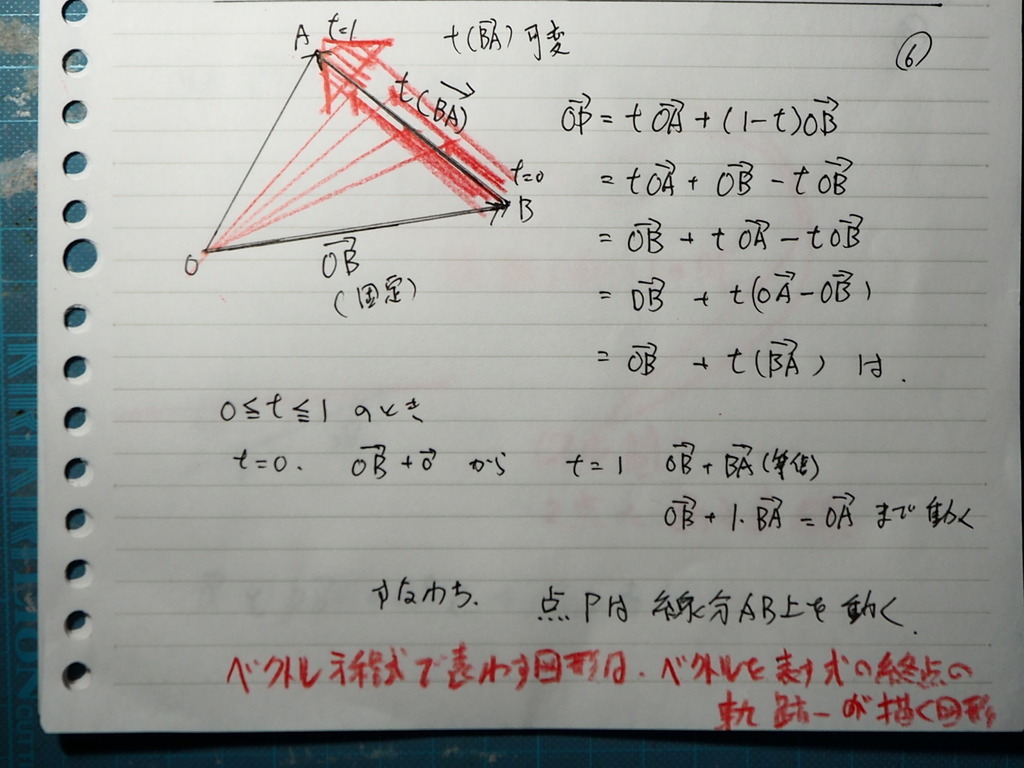 A t=1 t(BA→) 可変 ⑥
t(BA→)
OP→ = tOA→ + (1-t)OB→
t=0
= tOA→ + OB→ - tOB→
B
= OB→ + tOA→ - tOB→
O OB→
(固定)
= OB→ + t(OA→ - OB→)
= OB→ + t(BA→) は.
0≦t≦1 のとき
t=0. OB→ + 0→ から t=1 OB→ + BA→ (等倍)
OB→ + 1・BA→ = OA→ まで動く
すなわち. 点Pは 線分AB上を動く.
ベクトル方程式で表わす図形は、ベクトルを表す式の終点の
軌跡ーが描く図形